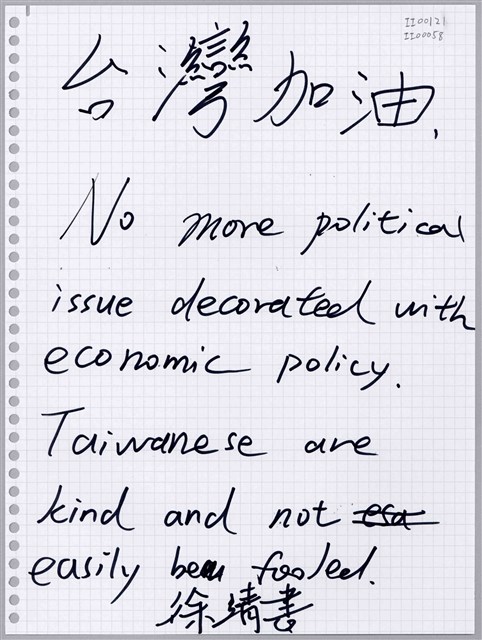 II00121
II00058
台灣加油.
No more political
issue decorated with
economic policy.
Taiwanese are
kind and not
easily been fooled.